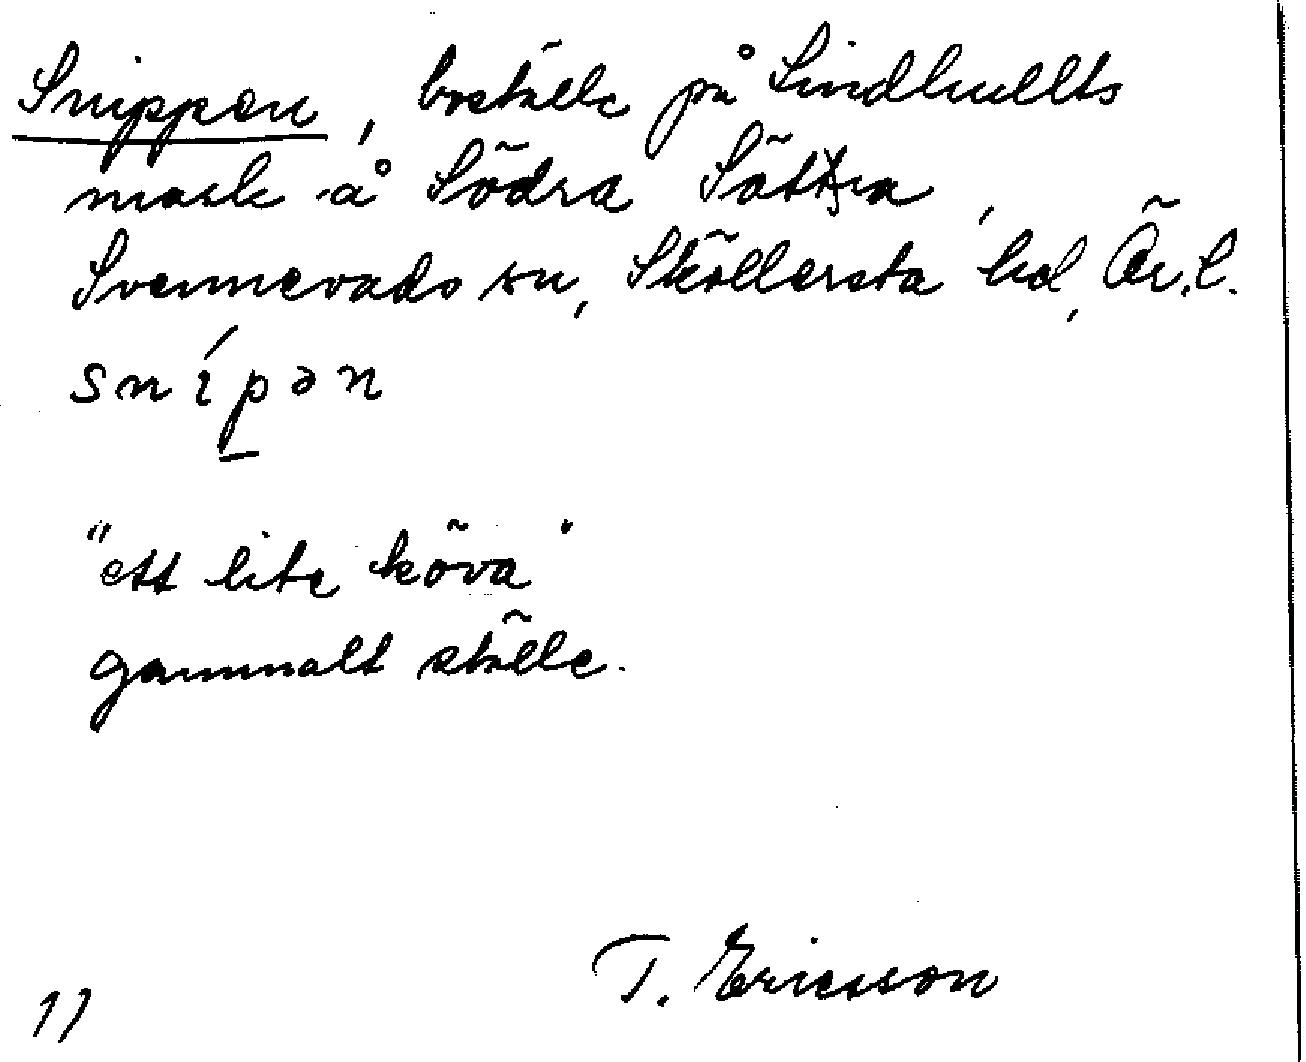 Snippen, boställe på Lindhullts
mark å Södra Sättra,
Svennevads sn, Sköllersta hd, Ör.l.
snípən
"ett lite köva"
gammalt ställe.
T. Ericsson